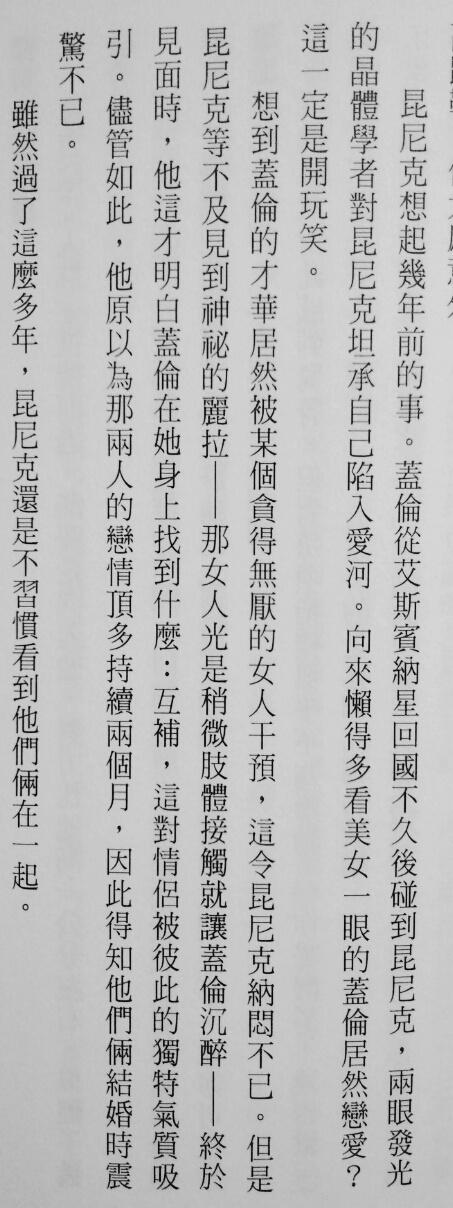 昆尼克想起幾年前的事。蓋倫從艾斯賓納星回國不久後碰到昆尼克，兩眼發光
的晶體學者對昆尼克坦承自己陷入愛河。向來懶得多看美女一眼的蓋倫居然戀愛？
這一定是開玩笑。
想到蓋倫的才華居然被某個貪得無厭的女人干預，這令昆尼克納悶不已。但是
昆尼克等不及見到神祕的麗拉——那女人光是稍微肢體接觸就讓蓋倫沉醉——終於
見面時，他這才明白蓋倫在她身上找到什麼：互補，這對情侶被彼此的獨特氣質吸
引。儘管如此，他原以為那兩人的戀情頂多持續兩個月，因此得知他們倆結婚時震
驚不已。
雖然過了這麼多年，昆尼克還是不習慣看到他們倆在一起。